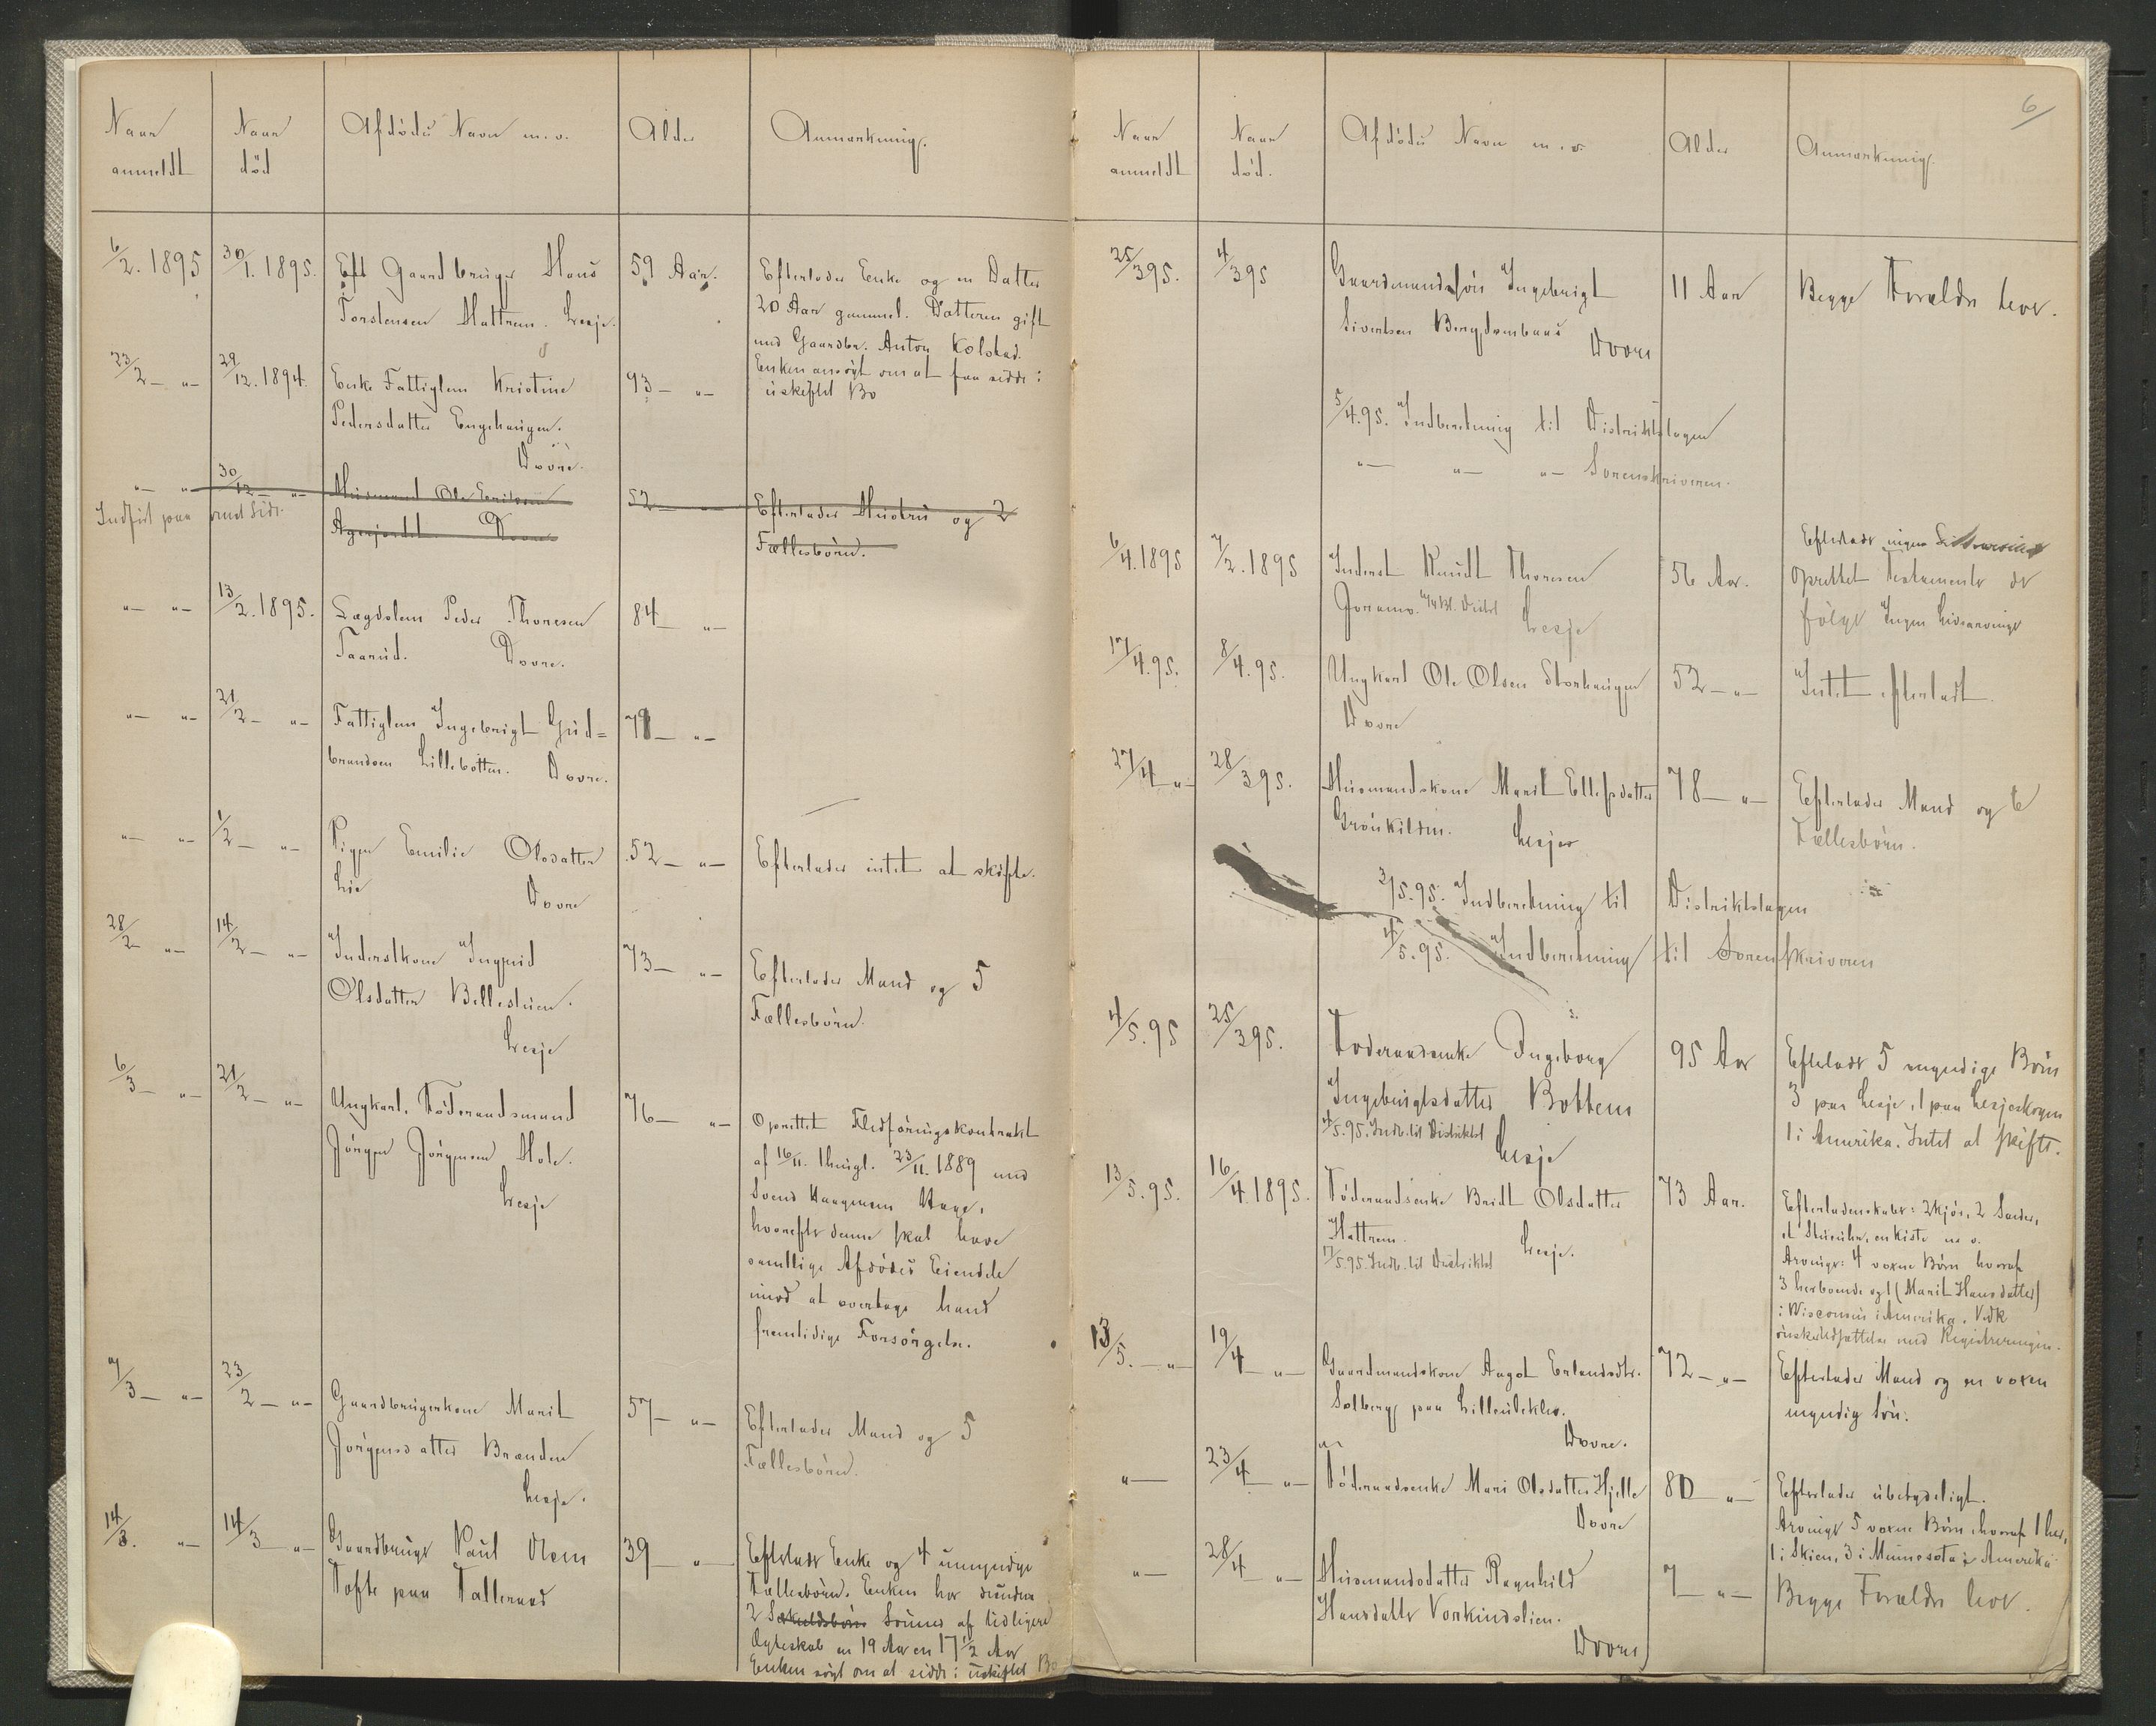 Naar anmeldt
Naar död
Afdødes Navn m.v.
Alder
Anmærkning.
6/2. 1895
30/1. 1895.
Gaardbruger Hans
Torstensen Hattrem. Lesje.
59 Aar.
Efterlader Enke og en Datter
20 Aar gammel. Datteren gift
med Gaardbr. Anton Kolstad.
Enken ansøgt om at faa sidde i
uskiftet Bo
23/2 — „—
29/12. 1894.
Enke Fattiglem Kristine
Pedersdatter Enghaugen.
Dovre.
93 — „—
„— „—
30/12 — „—
Husmand Ole Eriksen
Agerjordet Dovre
52 — „—
Efterlader Hustru og 2
Fællesbörn.
Indført paa
„— „—
13/2. 1895.
Lægdslem Peder Thoresen
Taarud. Dovre.
84 — „—
„— „—
21/2 — „—
Fattiglem Ingebrigt Gud=
brandsen Lillebotten. Dovre.
„—
„— „—
1/2 — „—
Pigen Emilie Olsdatter
Lie Dovre
52 — „—
Efterlader intet at skifte.
28/2 — „—
14/2 — „—
Inderstkone Ingrid
Olsdatter Bellestuen.
Lesje
73 — „—
Efterlader Mand og 5
Fællesbörn.
6/3 — „—
21/2 — „—
Ungkarl, Föderaadsmand
Jörgen Jörgensen Hole.
Lesje
76 — „—
Oprettet Fledföringskontrakt
af 16/11. thingl. 23/11. 1889 med
Svend Haagensen Hage,
hvorefter denne skal have
samtlige Afdødes Eiendele
imod at overtage hans
fremtidige Forsörgelse.
7/3 — „—
23/2 — „—
Gaardbrugerkone Marit
Jörgensdatter Brænden
Lesje.
57 — „—
Efterlader Mand og 5
Fællesbörn.
14/3. „—
14/3 — „—
Gaardbruger Paul Olsen
Tofte paa Talleraas
39 — „—
Efterlader Enke og 4 umyndige
Fællesbörn. Enken har desuden
2 Særkuldsbörn Sönner af tidligere
Ægteskab en 19 Aar en 17 1/2 Aar
Enken søgt om at sidde i uskiftet Bo
6
Naar anmeldt
Naar död.
Afdødes Navn m.v.
Alder
Anmærkning.
25/3 95.
4/3 95
Gaardmandssön Ingebrigt
Sivertsen Bergdombaas
Dovre
11 Aar
Begge Forældre lever.
5/4. 95. Indberetning til Distriktslagen
„— „— „— Sorenskriveren.
6/4. 1895
7/2. 1895
Inderst Knudt Thoresen
Joramo. Lesje
56 Aar.
Efterlader ingen
oprettet Testamente
følge Ingen Livsarvinger
17/4. 95.
8/4. 95.
Ungkarl Ole Olsen Storhaugen
Dovre
52 — „—
Intet efterladt.
27/4 „—
28/3 95.
Husmandskone Marit Ellefsdatter
Lesje
78 — „—
Efterlader Mand og 6
Fællesbörn.
3/5. 95. Indberetning til Distriktslagen
4/5. 95. Indberetning til Sorenskriveren
4/5. 95
25/3 95.
Foderaadsenke Ingeborg
Ingebrigtsdatter Bottem
4/5. 95. Indb. til Distriktet Lesje
95 Aar
Efterlader 5 myndige Börn
3 paa Lesje, 1 paa Lesjeskogen
1 i Amerika. Intet at skifte.
13/5. 95.
16/4. 1895.
Föderaadsenke Brit Olsdatter
Hattrem. Lesje.
7/5. 95. Indb. til Distriktet
73 Aar.
Efterladenskaber: 2 Kjör, 2 Sauer,
et Stueuhr, en kiste m.v.
Arvinger: 4 voxne Börn hvoraf
3 herboende og 1 (Marit Hansdatter)
i Wisconsin i Amerika. Vedk
13/5. — „—
19/4 — „—
Gaardmandskone Aagot Erlandsdtr.
Solberg paa
Dovre.
72 — „—
Efterlader Mand og en voxen
myndig Sön.
„—
23/4 — „—
Föderaadsenke Mari Olsdatter Hjelle
Dovre
80 — „—
Efterlader ubetydeligt.
Arvinger 5 voxne Börn, hvoraf 1 her,
1 i Skien, 3 i Minnesota i Amerika
„—
28/4 — „—
Husmandsdatter Ragnhild
Hansdatter Vorkindslien.
Dovre
7 — „—
Begge Forældre lever.